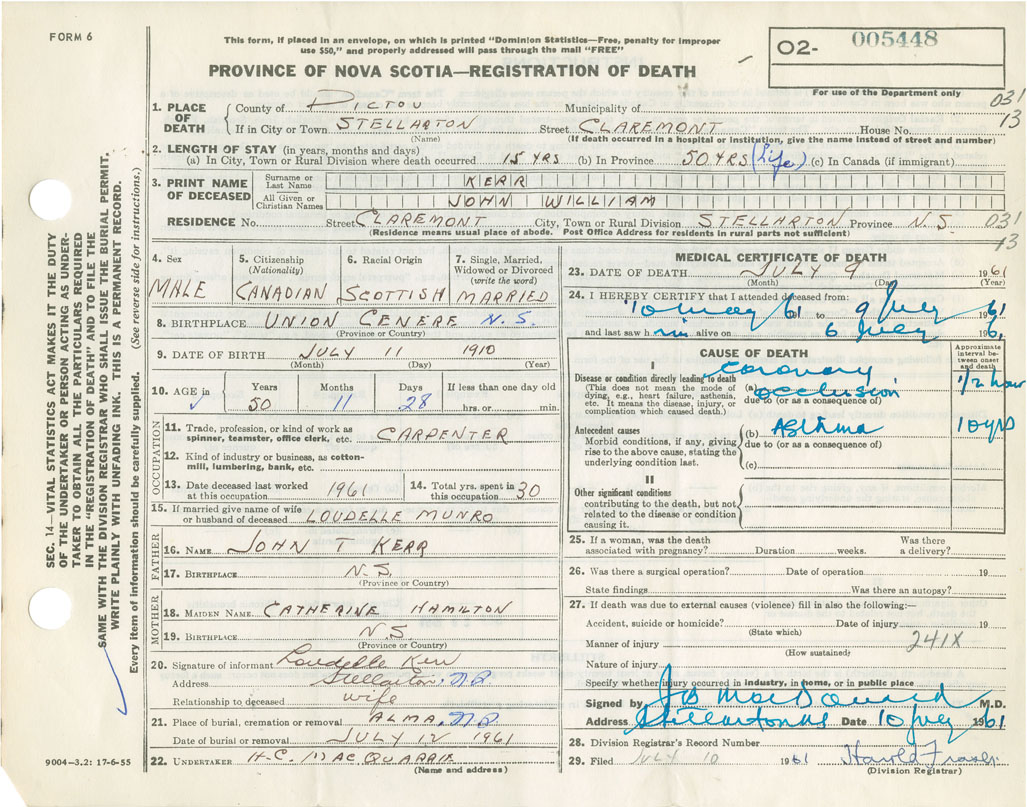 FORM 6
This form, if placed in an envelope, on which is printed "Dominion Statistics—Free, penalty for improper
use $50," and properly addressed will pass through the mail "FREE"
PROVINCE OF NOVA SCOTIA—REGISTRATION OF DEATH
O2- 005448
For use of the Department only
031
13
1. PLACE OF DEATH
County of PICTOU Municipality of
If in City or Town STELLARTON Street CLAREMONT House No.
(Name) (If death occurred in a hospital or institution, give the name instead of street and number)
2. LENGTH OF STAY (in years, months and days)
(a) In City, Town or Rural Division where death occurred 15 YRS (b) In Province 50 YRS (Life) (c) In Canada (if immigrant)
3. PRINT NAME OF DECEASED
Surname or Last Name KERR
All Given or Christian Names JOHN WILLIAM
RESIDENCE No. Street CLAREMONT City, Town or Rural Division STELLARTON Province N.S. 031
13
(Residence means usual place of abode. Post Office Address for residents in rural parts not sufficient)
4. Sex
MALE
5. Citizenship (Nationality)
CANADIAN
6. Racial Origin
SCOTTISH
7. Single, Married, Widowed or Divorced (write the word)
MARRIED
8. BIRTHPLACE UNION CENERE N.S.
(Province or Country)
9. DATE OF BIRTH JULY 11 1910
(Month) (Day) (Year)
10. AGE in Years Months Days If less than one day old
50 11 28 hrs. or min.
OCCUPATION
11. Trade, profession, or kind of work as
spinner, teamster, office clerk, etc. CARPENTER
12. Kind of industry or business, as cotton-
mill, lumbering, bank, etc.
13. Date deceased last worked
at this occupation 1961
14. Total yrs. spent in
this occupation 30
15. If married give name of wife
or husband of deceased LOUDELLE MUNRO
FATHER
16. NAME JOHN T KERR
17. BIRTHPLACE N.S.
(Province or Country)
MOTHER
18. MAIDEN NAME CATHERINE HAMILTON
19. BIRTHPLACE N.S.
(Province or Country)
20. Signature of informant Loudelle Kerr
Address Stellarton, N.S.
Relationship to deceased wife
21. Place of burial, cremation or removal ALMA, N.S.
Date of burial or removal JULY 12 1961
22. UNDERTAKER H.C. MACQUARRIE
(Name and address)
MEDICAL CERTIFICATE OF DEATH
23. DATE OF DEATH JULY 9 1961
(Month) (Day) (Year)
24. I HEREBY CERTIFY that I attended deceased from:
10 May 61 to 9 July 1961
and last saw him alive on 6 July 1961
CAUSE OF DEATH
Approximate interval between onset and death
I
Disease or condition directly leading to death
(This does not mean the mode of
dying, e.g., heart failure, asthenia,
etc. It means the disease, injury, or
complication which caused death.)
(a) Coronary occlusion 1/2 hour
due to (or as a consequence of)
Antecedent causes
Morbid conditions, if any, giving
rise to the above cause, stating the
underlying condition last.
(b) Asthma 10 yrs
due to (or as a consequence of)
(c)
II
Other significant conditions
contributing to the death, but not
related to the disease or condition
causing it.
25. If a woman, was the death Was there
associated with pregnancy? Duration weeks. a delivery?
26. Was there a surgical operation? Date of operation 19
State findings Was there an autopsy?
27. If death was due to external causes (violence) fill in also the following:—
Accident, suicide or homicide? Date of injury 19
(State which)
Manner of injury 241X
(How sustained)
Nature of injury
Specify whether injury occurred in industry, in home, or in public place
Signed by J B MacDonald M.D.
Address Stellarton NS Date 10 July 1961
28. Division Registrar's Record Number
29. Filed JULY 10 1961 Harold Fraser
(Division Registrar)
SEC. 14—VITAL STATISTICS ACT MAKES IT THE DUTY
OF THE UNDERTAKER OR PERSON ACTING AS UNDER-
TAKER TO OBTAIN ALL THE PARTICULARS REQUIRED
IN THE "REGISTRATION OF DEATH" AND TO FILE THE
SAME WITH THE DIVISION REGISTRAR WHO SHALL ISSUE THE BURIAL PERMIT.
WRITE PLAINLY WITH UNFADING INK. THIS IS A PERMANENT RECORD.
Every item of information should be carefully supplied. (See reverse side for instructions.)
9004—3.2: 17-6-55